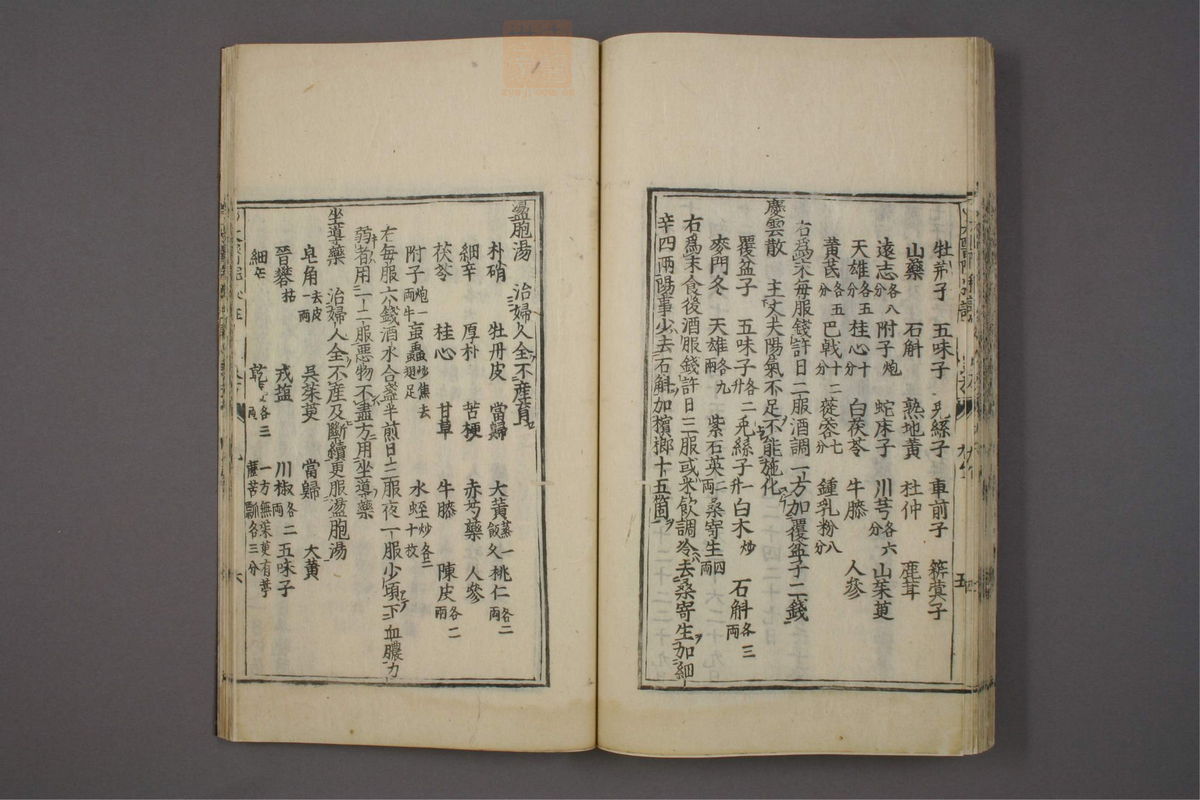 牡荊子 五味子 兎絲子 車前子 菥蓂子
山藥 石斛 熟地黃 杜仲 鹿茸
遠志各八分 附子炮 蛇床子 川芎各六分 山茱萸
天雄各五分 桂心十分 白茯苓 牛膝 人參
黃芪各五分 巴戟十二分 蓯蓉七分 鍾乳粉八分
右爲末每服錢許日二服酒調一方加覆盆子二錢
慶雲散 主丈夫陽氣不足不能施化
覆盆子 五味子各二升 兎絲子一升 白木炒 石斛各三兩
麥門冬 天雄各九兩 紫石英二兩 桑寄生四兩
右爲末食後酒服錢許日三服或米飮調冷去桑寄生加細
辛四兩陽事少去石斛加檳榔十五箇
盪胞湯 治婦人全不產育
朴硝 牡丹皮 當歸 大黃蒸一飯久 桃仁各二兩
細辛 厚朴 苦梗 赤芍藥 人參
茯苓 桂心 甘草 牛膝 陳皮各二兩
附子炮一兩半 䖟蟲炒焦去翅足 水蛭炒各二十枚
右每服六錢酒水合盞半煎日三服夜一服少頃下血膿力
弱者用一二服惡物不盡方用坐導藥
坐導藥 治婦人全不產及斷續更服盪胞湯
皂角去皮一兩 吳茱萸 當歸 大黃
晉礬枯 戎塩 川椒各二兩 五味子
細辛 乾 各三兩 一方無茱萸有葶藶苦瓠各三分